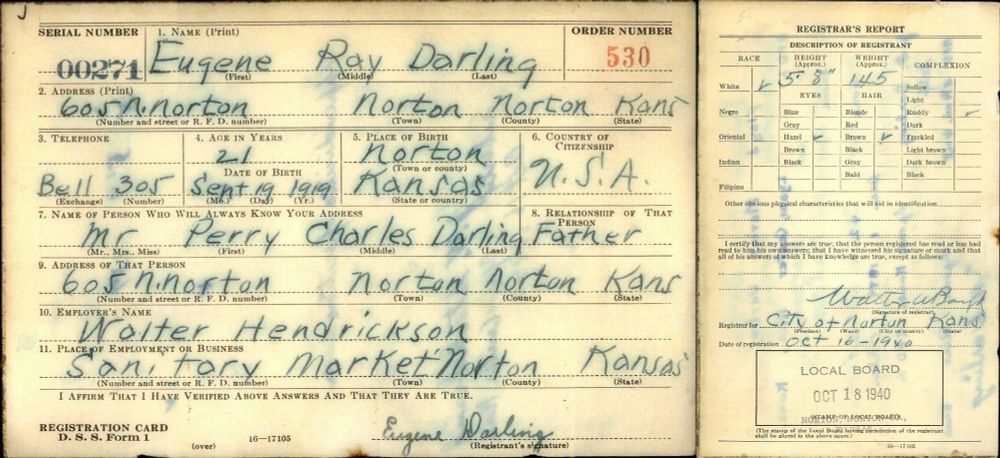 SERIAL NUMBER
00271
1. NAME (Print)
Eugene Ray Darling
(First) (Middle) (Last)
ORDER NUMBER
530
2. ADDRESS (Print)
605 N. Norton Norton Norton Kans
(Number and street or R. F. D. number) (Town) (County) (State)
3. TELEPHONE
Bell 305
(Exchange) (Number)
4. AGE IN YEARS
21
DATE OF BIRTH
Sept 19 1919
(Mo.) (Day) (Yr.)
5. PLACE OF BIRTH
Norton
(Town or county)
Kansas
(State or country)
6. COUNTRY OF
CITIZENSHIP
U.S.A.
7. NAME OF PERSON WHO WILL ALWAYS KNOW YOUR ADDRESS
Mr Perry Charles Darling
(Mr., Mrs., Miss) (First) (Middle) (Last)
8. RELATIONSHIP OF THAT
PERSON
Father
9. ADDRESS OF THAT PERSON
605 N. Norton Norton Norton Kans
(Number and street or R. F. D. number) (Town) (County) (State)
10. EMPLOYER'S NAME
Walter Hendrickson
11. PLACE OF EMPLOYMENT OR BUSINESS
Sanitary Market Norton Kansas
(Number and street or R. F. D. number) (Town) (County) (State)
I AFFIRM THAT I HAVE VERIFIED ABOVE ANSWERS AND THAT THEY ARE TRUE.
REGISTRATION CARD
D. S. S. Form 1
(over)
16—17105
Eugene Darling
(Registrant's signature)
REGISTRAR'S REPORT
DESCRIPTION OF REGISTRANT
RACE
HEIGHT
(Approx.)
WEIGHT
(Approx.)
COMPLEXION
White ✓ 5' 8" 145
Sallow
EYES HAIR
Light
Negro Blue Blonde Ruddy ✓
Gray Red Dark
Oriental Hazel ✓ Brown ✓ Freckled
Brown Black Light brown
Indian Black Gray Dark brown
Bald Black
Filipino
Other obvious physical characteristics that will aid in identification
I certify that my answers are true; that the person registered has read or has had
read to him his own answers; that I have witnessed his signature or mark and that
all of his answers of which I have knowledge are true, except as follows:
Walter W Boyd
(Signature of registrar)
Registrar for City of Norton Kans
(Precinct) (Ward) (City or county) (State)
Date of registration Oct 16-1940
LOCAL BOARD
OCT 18 1940
STAMP OF LOCAL BOARD
NORTON,
(The stamp of the Local Board having jurisdiction of the registrant
shall be placed in the above space.)
16—17105